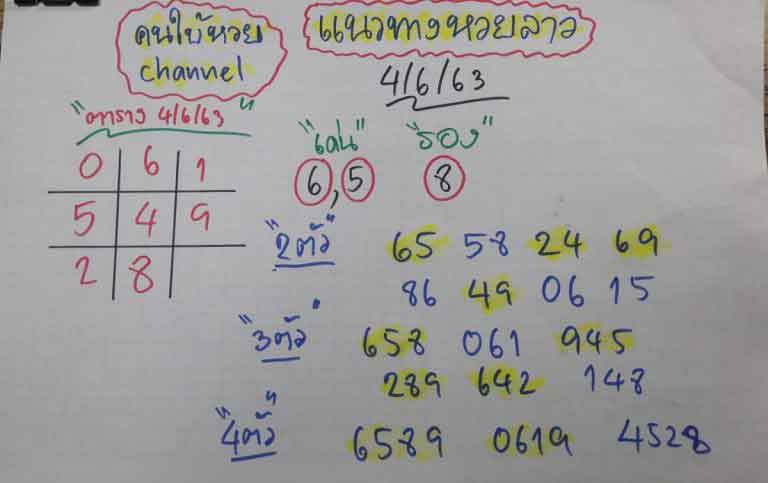 คนใบ้หวย
channel
แนวทางหวยลาว
4/6/63
"ตาราง 4/6/63"
0 6 1
5 4 9
2 8
"เด่น" "รอง"
6,5 8
"2ตัว" 65 58 24 69
86 49 06 15
"3ตัว" 658 061 945
289 642 148
"4ตัว" 6589 0619 4528